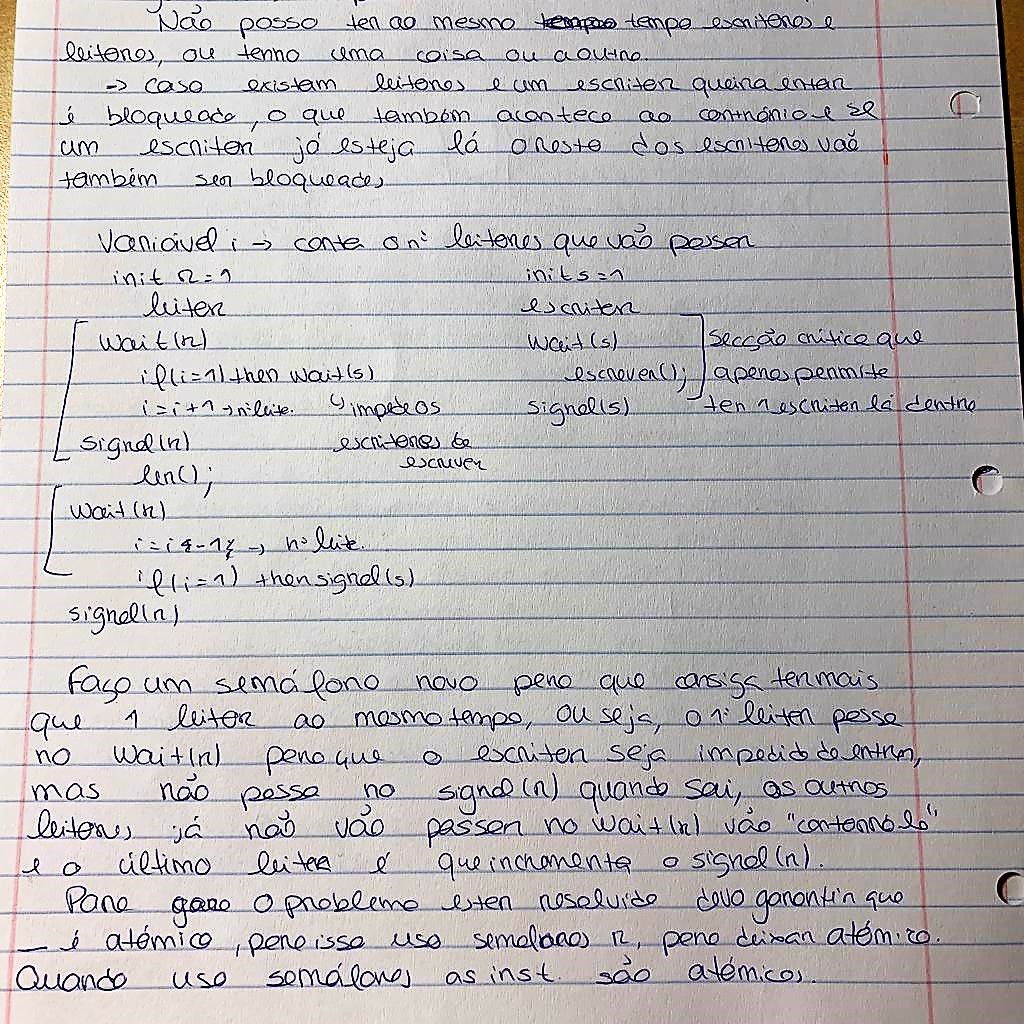 Não posso ter ao mesmo tempo tempo escritores e
leitores, ou tenho uma coisa ou a outra.
-> caso existam leitores e um escritor queira entrar
é bloqueado, o que também acontece ao contrário e se
um escritor já esteja lá o resto dos escritores vão
também ser bloqueados
Variável i -> conta o nº leitores que vão passar
init r=1 init s=1
leitor escritor
wait(r) wait(s) secção crítica que
if(i=1) then wait(s) escrever(); apenas permite
i=i+1 -> nº leite. ↳ impede os signal(s) ter 1 escritor lá dentro
signal(r) escritores de
escrever
ler();
wait(r)
i=i-1; -> nº leit.
if(i=1) then signal(s)
signal(r)
Faço um semáforo novo para que consiga ter mais
que 1 leitor ao mesmo tempo, ou seja, o 1º leitor passa
no wait(r) para que o escritor seja impedido de entrar,
mas não passa no signal(r) quando sai, os outros
leitores já não vão passar no wait(r) vão "contorná-lo"
e o último leitor é que incrementa o signal(r).
Para o problema estar resolvido devo garantir que
_ é atómico, para isso uso semáforos r, para deixar atómico.
Quando uso semáforos as inst. são atómicas.